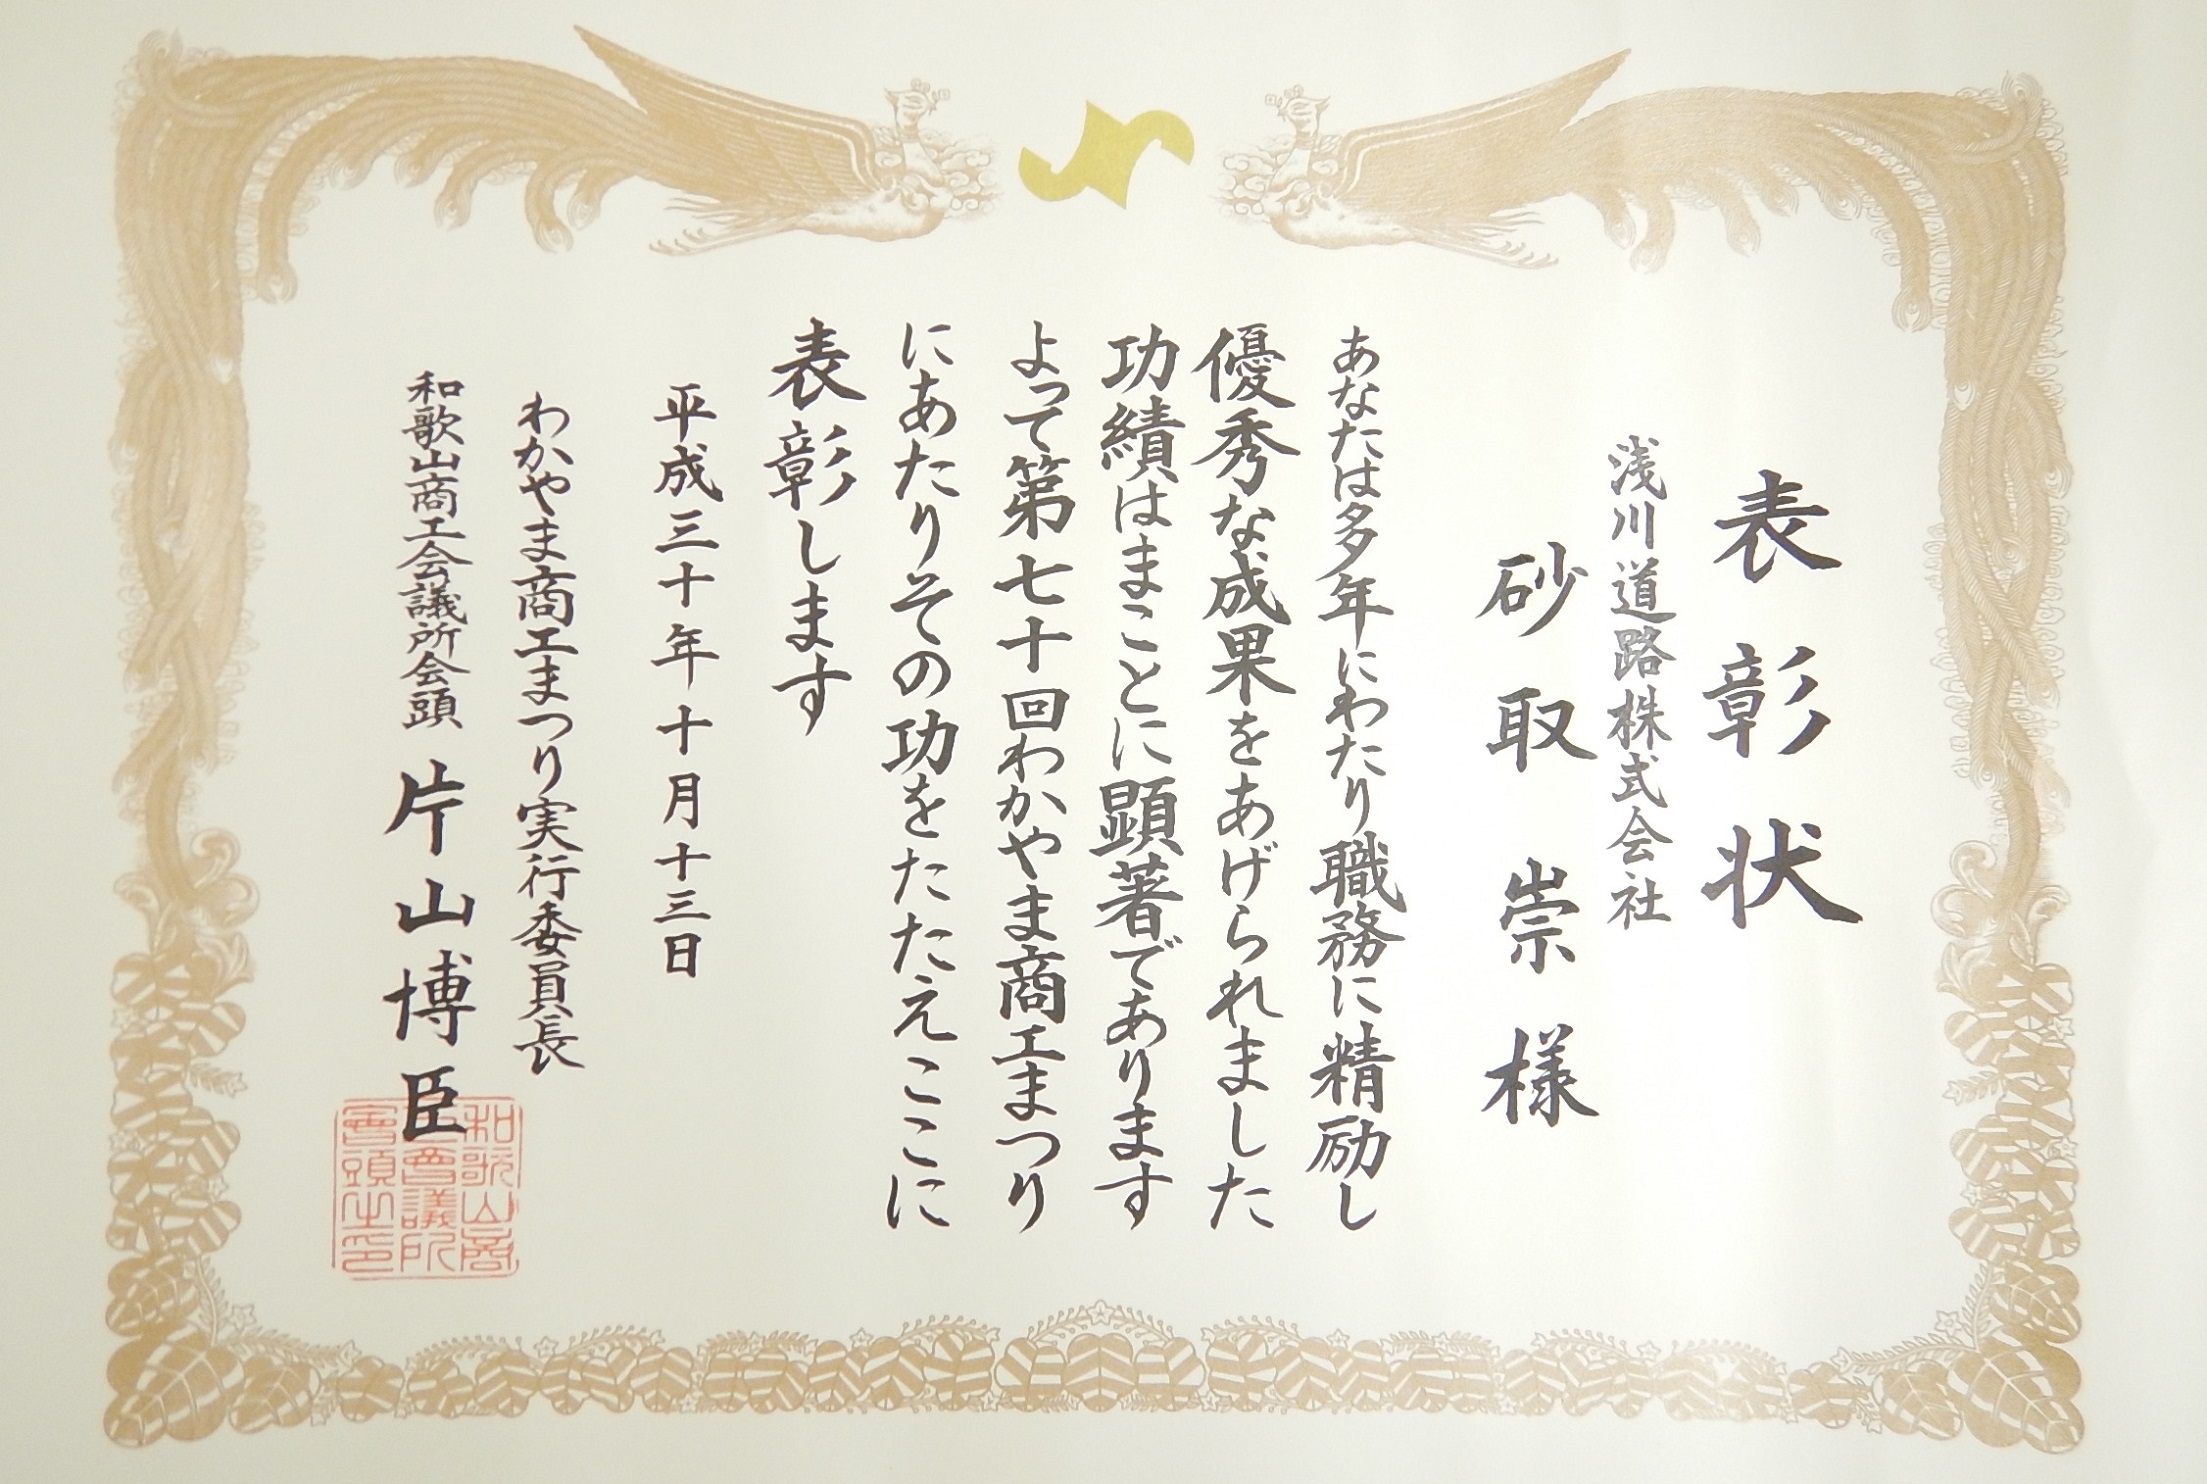 表彰状
浅川道路株式会社
砂取崇様
あなたは多年にわたり職務に精励し
優秀な成果をあげられました
功績はまことに顕著であります
よって第七十回わかやま商工まつり
にあたりその功をたたえここに
表彰します
平成三十年十月十三日
わかやま商工まつり実行委員長
和歌山商工会議所会頭 片山博臣
和歌山商
工會議所
會頭之印